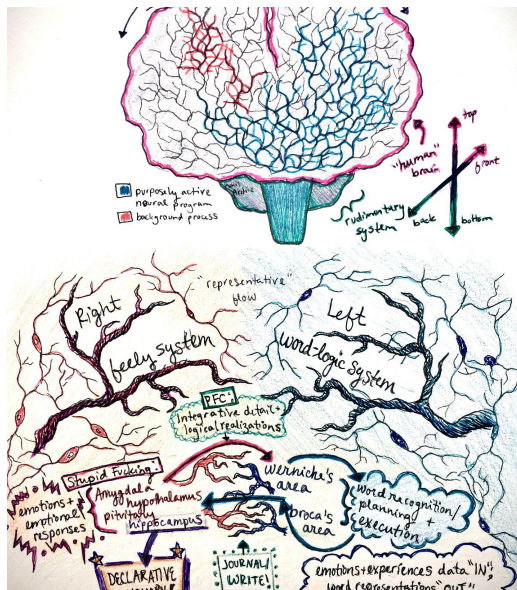 purposely active
neural program
background process
"human"
brain
top
front
rudimentary
system
back
bottom
"representative"
flow
Right
feely system
Left
word-logic system
PFC:
integrative detail +
logical realizations
Stupid Fucking:
Amygdala
hypothalamus
pitvitary
hippocampus
emotions +
emotional
responses
wernicke's
area
broca's
area
word recognition/
planning +
execution
DECLARATIVE
JOURNAL/
WRITE!
emotions+experiences data "IN",
word representations "OUT"